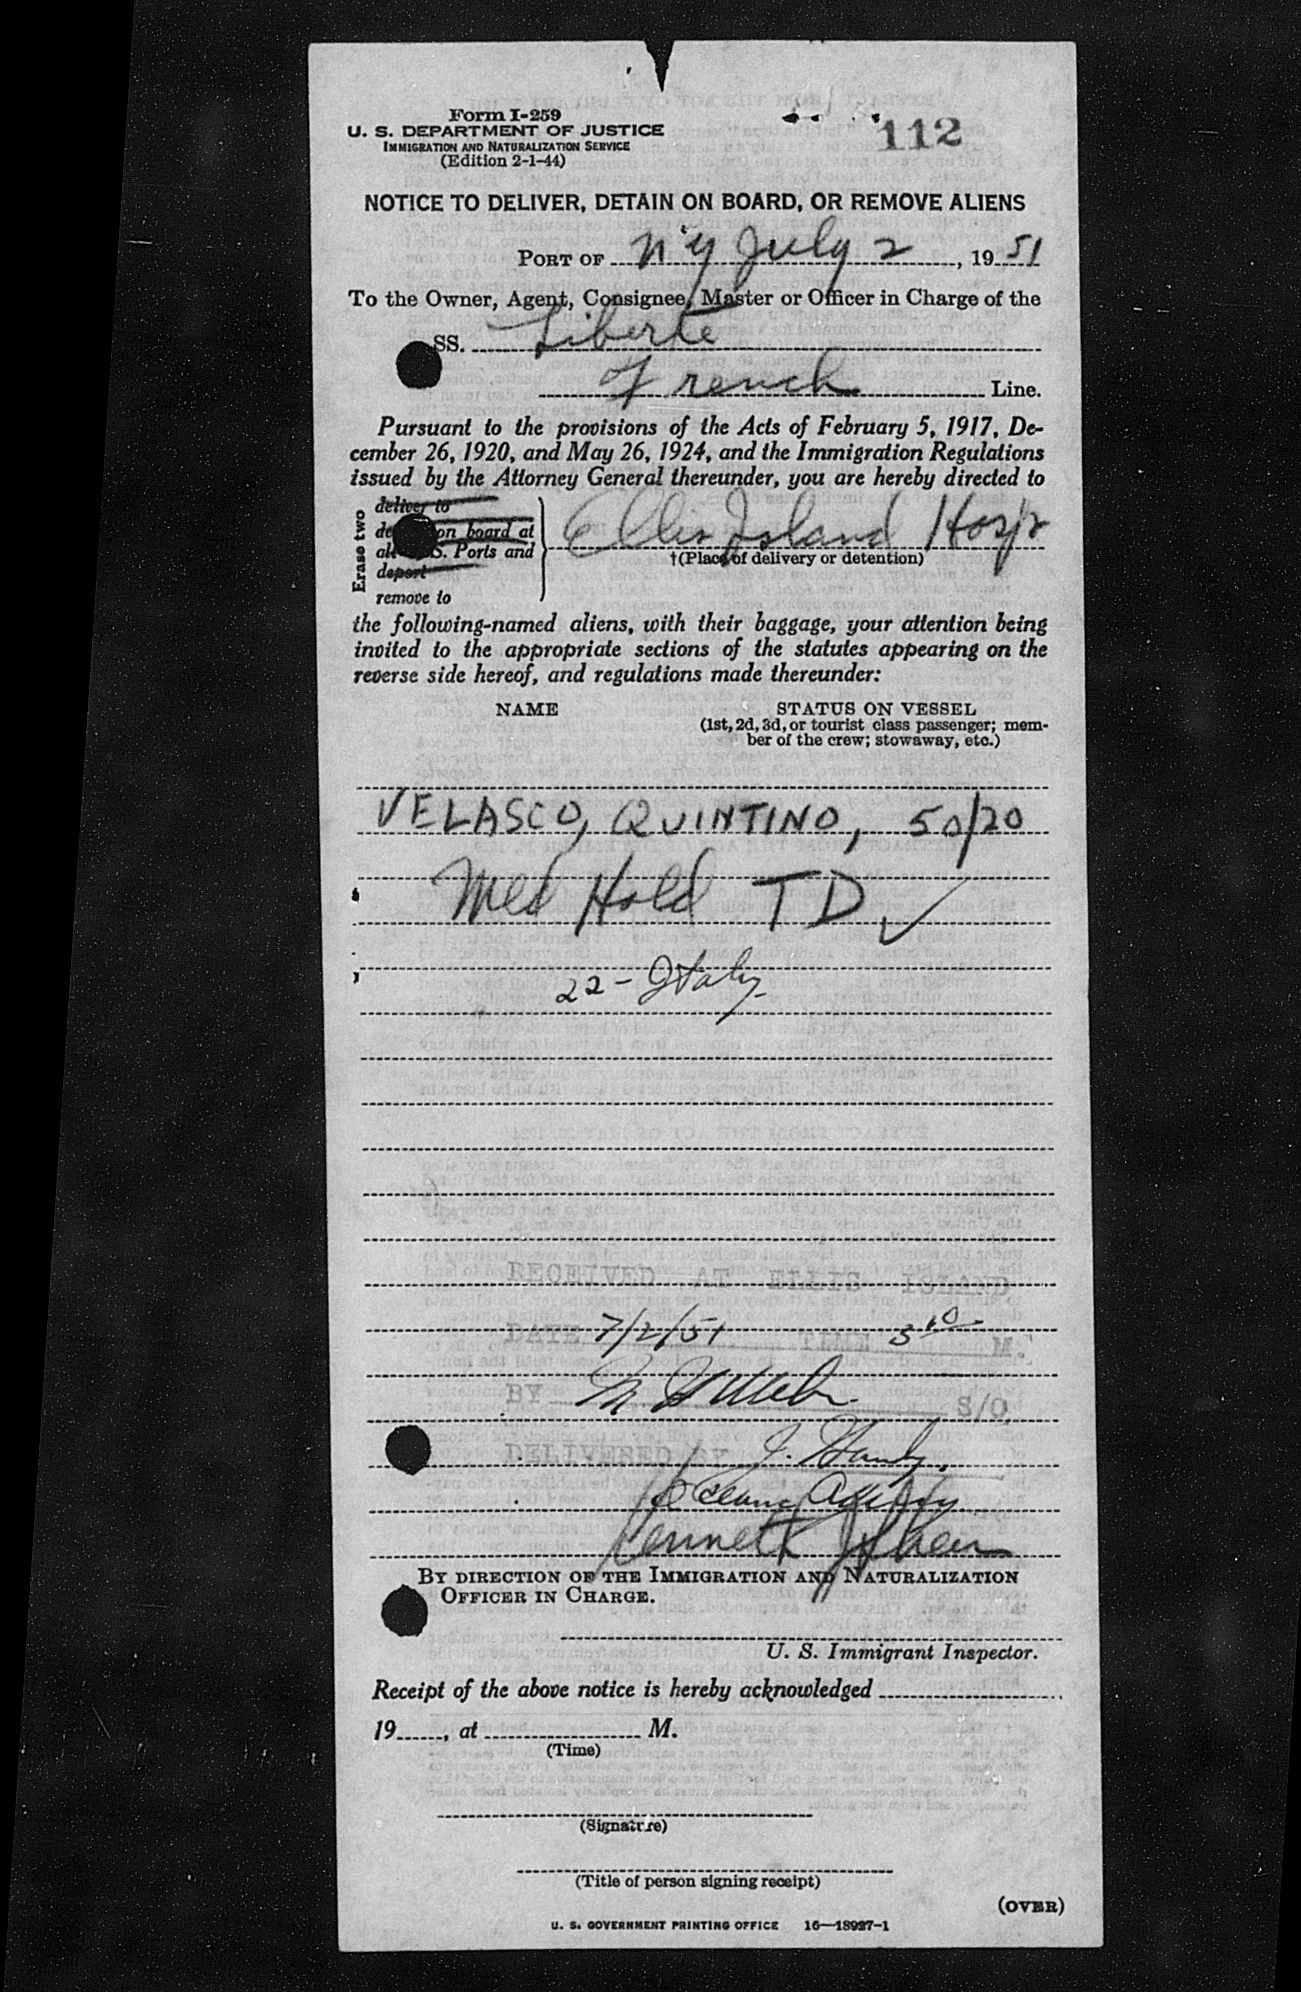 Form I-259
U. S. DEPARTMENT OF JUSTICE
IMMIGRATION AND NATURALIZATION SERVICE
(Edition 2-1-44)
112
NOTICE TO DELIVER, DETAIN ON BOARD, OR REMOVE ALIENS
PORT OF N Y July 2, 1951
To the Owner, Agent, Consignee, Master or Officer in Charge of the
SS. Liberte
French Line.
Pursuant to the provisions of the Acts of February 5, 1917, De-
cember 26, 1920, and May 26, 1924, and the Immigration Regulations
issued by the Attorney General thereunder, you are hereby directed to
Erase two
deliver to
on board at
S. Ports and
deport
remove to
Ellis Island Hosp
†(Place of delivery or detention)
the following-named aliens, with their baggage, your attention being
invited to the appropriate sections of the statutes appearing on the
reverse side hereof, and regulations made thereunder:
NAME
STATUS ON VESSEL
(1st, 2d, 3d, or tourist class passenger; mem-
ber of the crew; stowaway, etc.)
VELASCO, QUINTINO, 50/20
Med Hold TD ✓
22 - Italy
RECEIVED AT ELLIS ISLAND
DATE 7/2/51 TIME 3 10 M.
BY S/O.
DELIVERED BY J.
Kenneth
BY DIRECTION OF THE IMMIGRATION AND NATURALIZATION
OFFICER IN CHARGE.
U. S. Immigrant Inspector.
Receipt of the above notice is hereby acknowledged
19 , at M.
(Time)
(Signature)
(Title of person signing receipt)
(OVER)
U. S. GOVERNMENT PRINTING OFFICE 16—18927-1